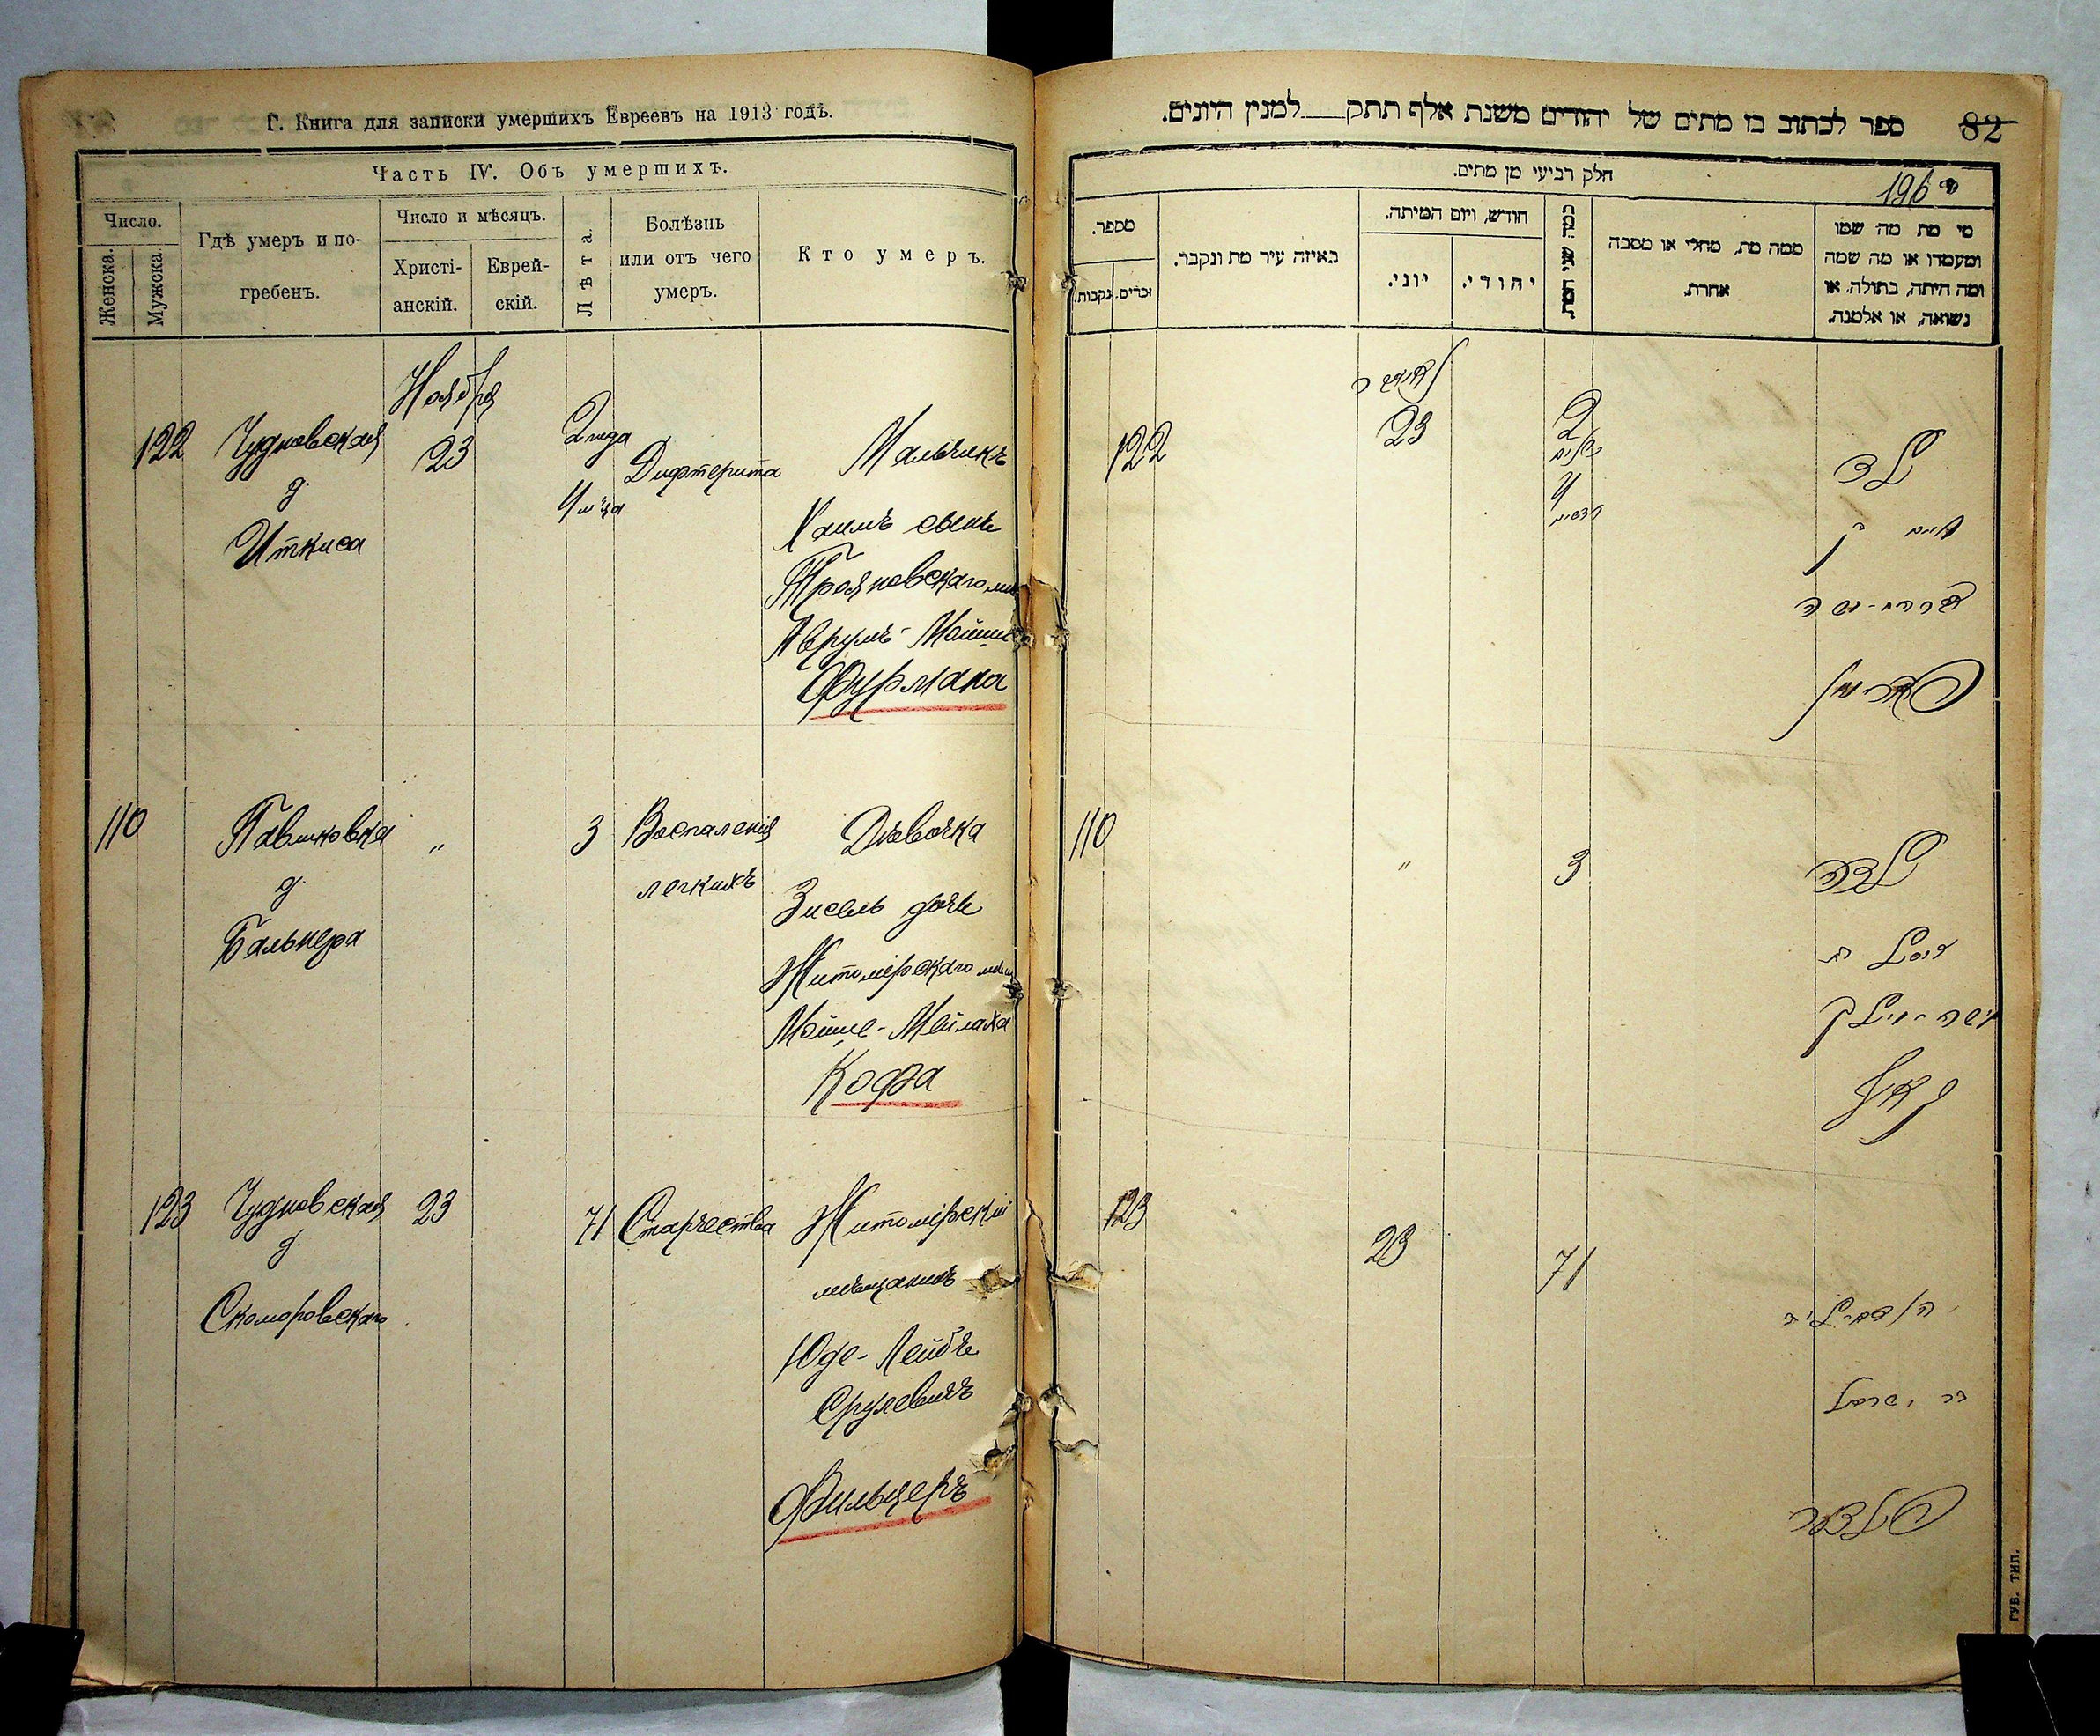 Г. Книга для записки умершихъ Евреевъ на 1913 годъ.
Часть IV. Объ умершихъ.
Число.
Женска.
Мужска.
Гдѣ умеръ и по-
гребенъ.
Число и мѣсяцъ.
Христі-
анскій.
Еврей-
скій.
Лѣта.
Болѣзнь
или отъ чего
умеръ.
Кто умеръ.
Ноября
122 Чудновская 23 2 года Дифтерита Мальчикъ
д.
Иткиса
Хаимъ сынъ
Трояновскаго
Аврумъ-Мойше
Фурмана
110 Павликовка " 3 Воспаленія Дѣвочка
д.
легкихъ
Бальнера
Зисель дочь
Житомірскаго
Мойше-Мейлаха
Кофа
123 Чудновская 23 71 Старчества Житомірскій
д.
Скоморовскаго
мѣщанинъ
Юде-Лейбъ
Срулевичъ
Фильцеръ
ספר לכתוב בו מתים של יהודים משנת אלף תתק למנין היונים.
82
196
חלק רביעי מן מתים.
מספר.
נקבות.
זכרים.
באיזה עיר מת ונקבר.
חודש, ויום המיתה.
יוני.
יהודי.
כמה שני המת
ממה מת, מחלי או מסבה
אחרת.
מי מת מה שמו
ומעמדו או מה שמה
ומה היתה, בתולה, או
נשואה, או אלמנה.
122 23 2 ילד
4
חיים בן
אברהם-משה
פורמאן
110 " 3 ילדה
זיסל בת
משה-מיילך
קאף
123 23 71
בר ישראל
פילצער
ГУВ. ТИП.